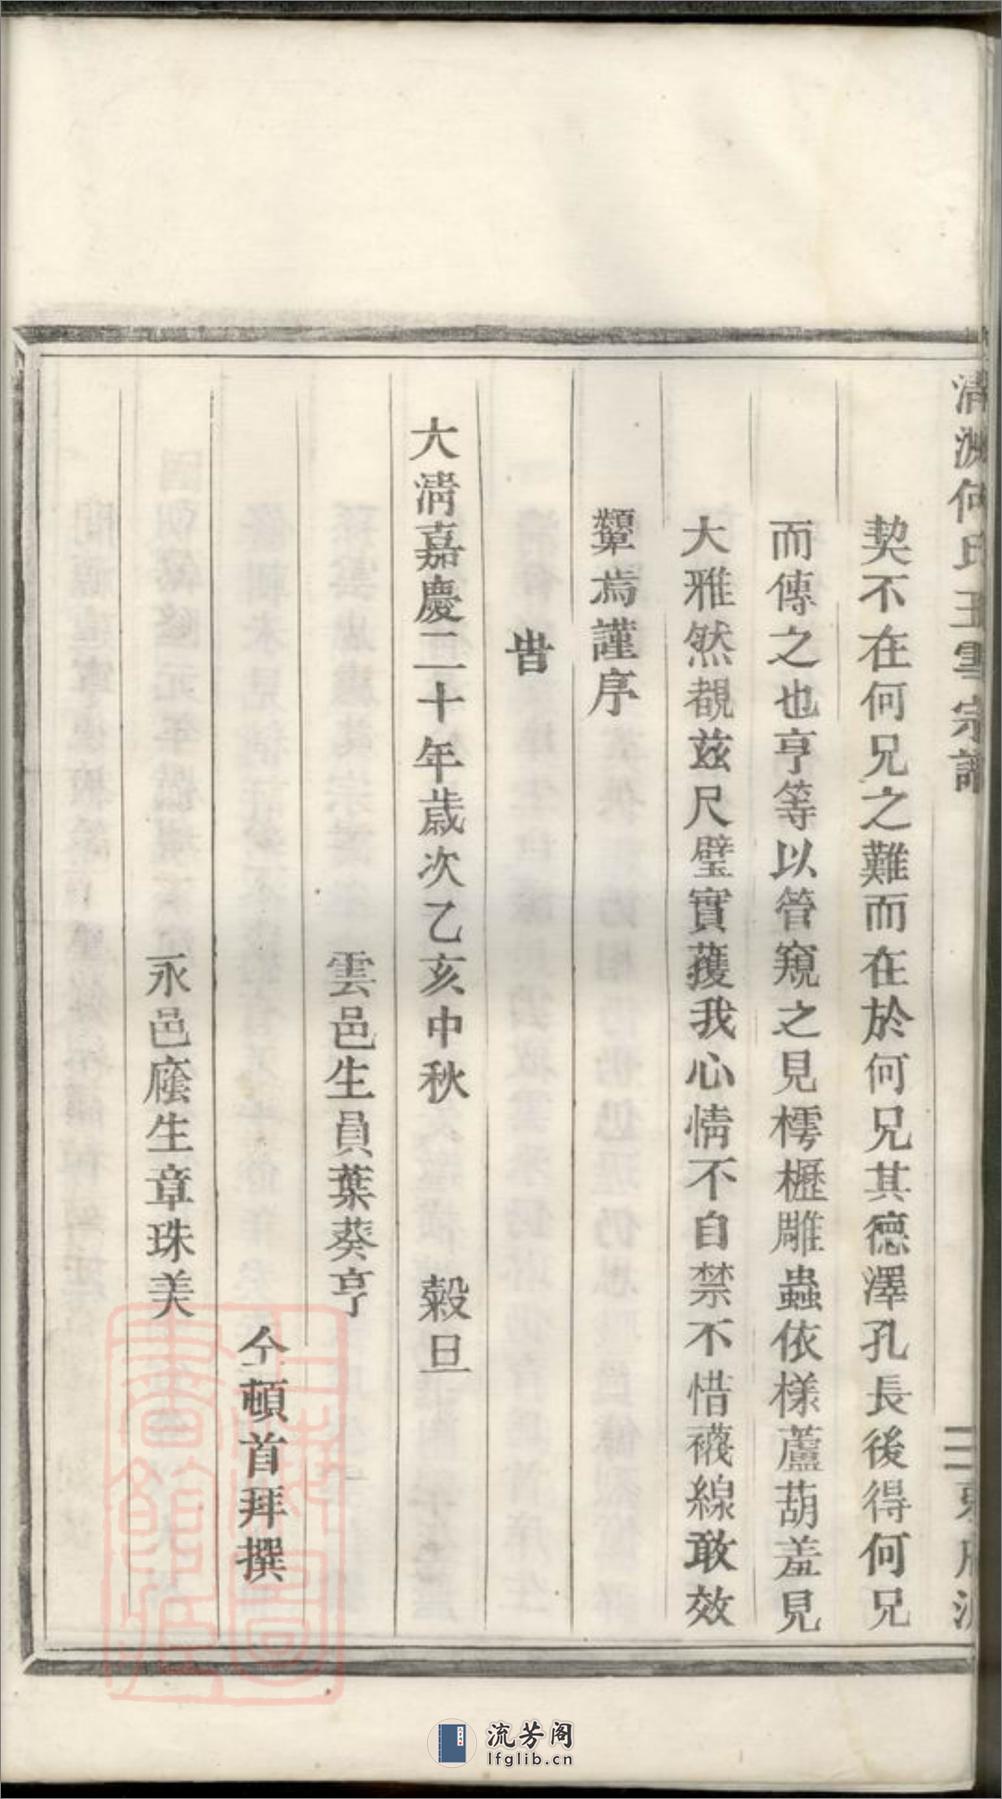 清溯何氏玉雪宗譜
契不在何兄之難而在於何兄其德澤孔長後得何兄
而傳之也亨等以管窺之見樗櫪雕蟲依樣蘆葫羞見
大雅然覩兹尺璧實蒦我心情不自禁不惜襪線敢效
顰焉謹序
旹
大淸嘉慶二十年歲次乙亥中秋 穀旦
雲邑生員葉葵亨
仝頓首拜撰
永邑廕生章珠美
流芳阁
lfglib.cn